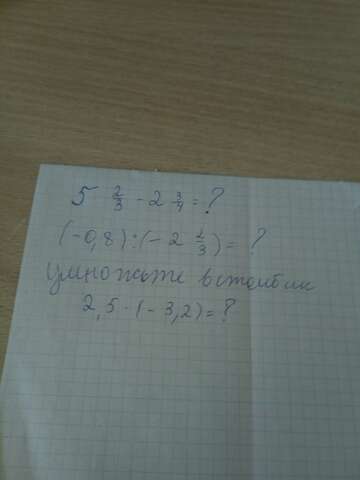 5 2/3 - 2 3/4 = ?
(-0,8):(-2 2/3) = ?
умножьте в столбик
2,5 · (-3,2) = ?